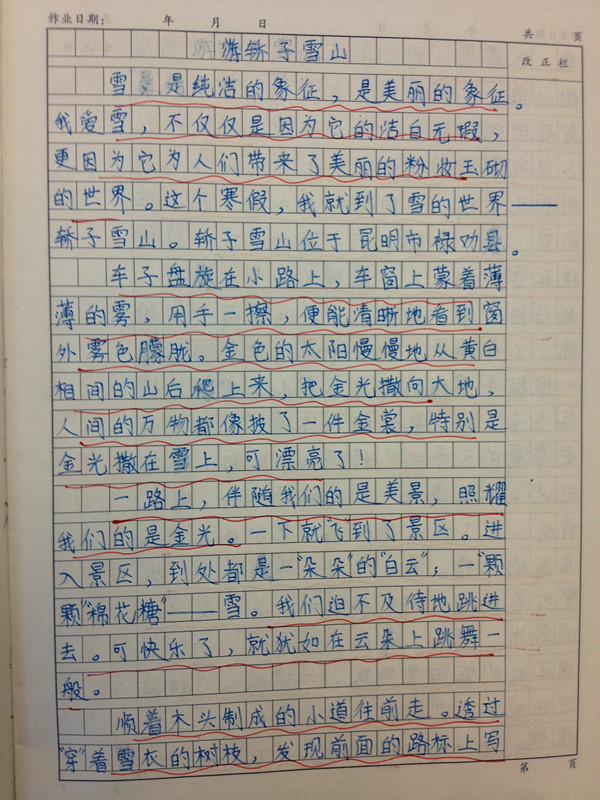 作业日期： 年 月 日
共 页
游轿子雪山
改正栏
雪是纯洁的象征，是美丽的象征。
我爱雪，不仅仅是因为它的洁白无瑕，
更因为它为人们带来了美丽的粉妆玉砌
的世界。这个寒假，我就到了雪的世界——
轿子雪山。轿子雪山位于昆明市禄劝县。
车子盘旋在小路上，车窗上蒙着薄
薄的雾，用手一擦，便能清晰地看到窗
外雾色朦胧。金色的太阳慢慢地从黄白
相间的山后爬上来，把金光撒向大地，
人间的万物都像披了一件金裳，特别是
金光撒在雪上，可漂亮了！
一路上，伴随我们的是美景，照耀
我们的是金光。一下就“飞”到了景区。进
入景区，到处都是一“朵朵”的“白云”；一“颗
颗”棉花糖”——雪。我们迫不及待地跳进
去。可快乐了，就犹如在云朵上跳舞一
般。
顺着木头制成的小道往前走。透过
“穿”着雪衣的树枝，发现前面的路标上写
第 页